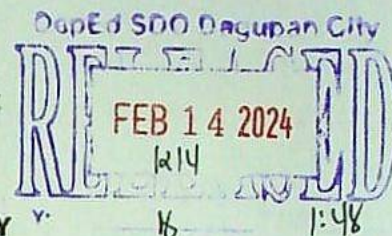 DepEd SDO Dagupan City
RELEASED
FEB 14 2024
1214
Y.
1:48